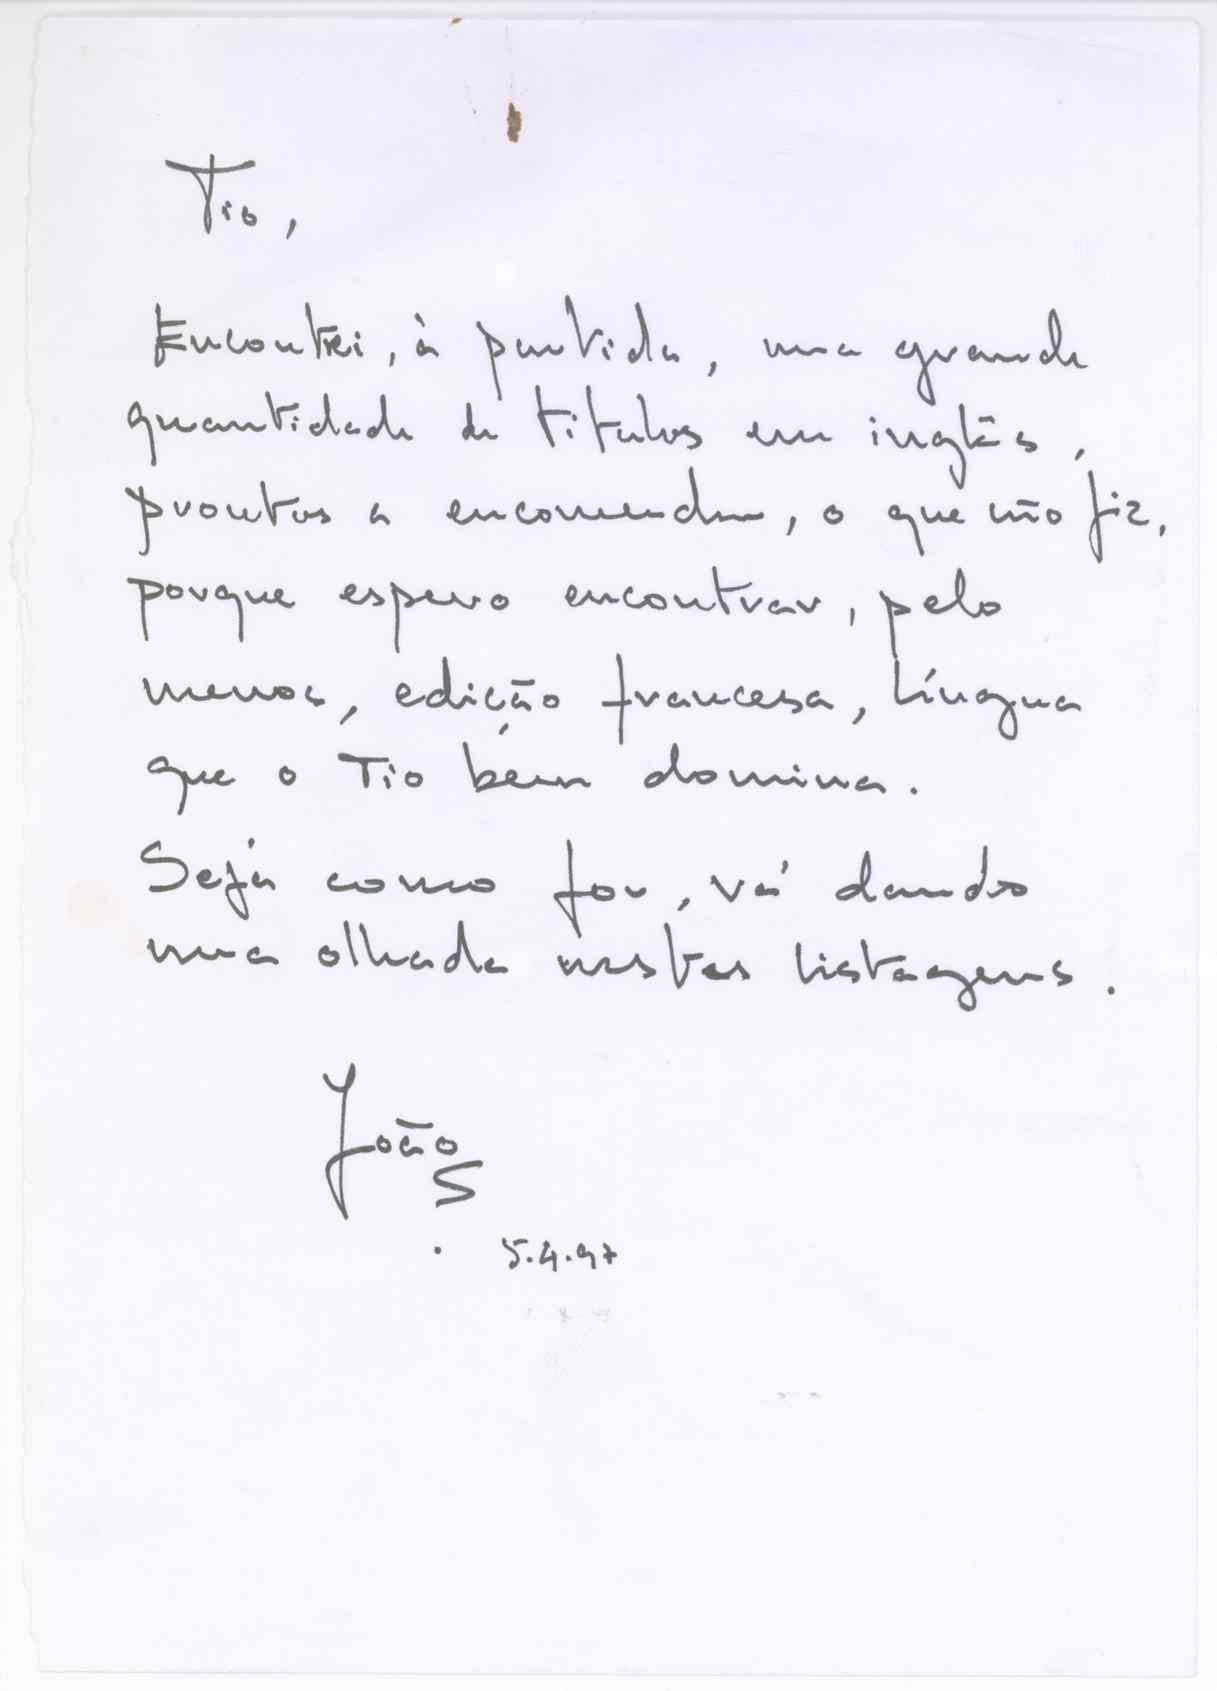 Tio,
Encontrei, à partida, uma grande
quantidade de títulos em inglês,
prontos a encomendar, o que não fiz,
porque espero encontrar, pelo
menos, edição francesa, língua
que o Tio bem domina.
Seja como for, vá dando
uma olhada nestas listagens.
João
S
. 5.4.97